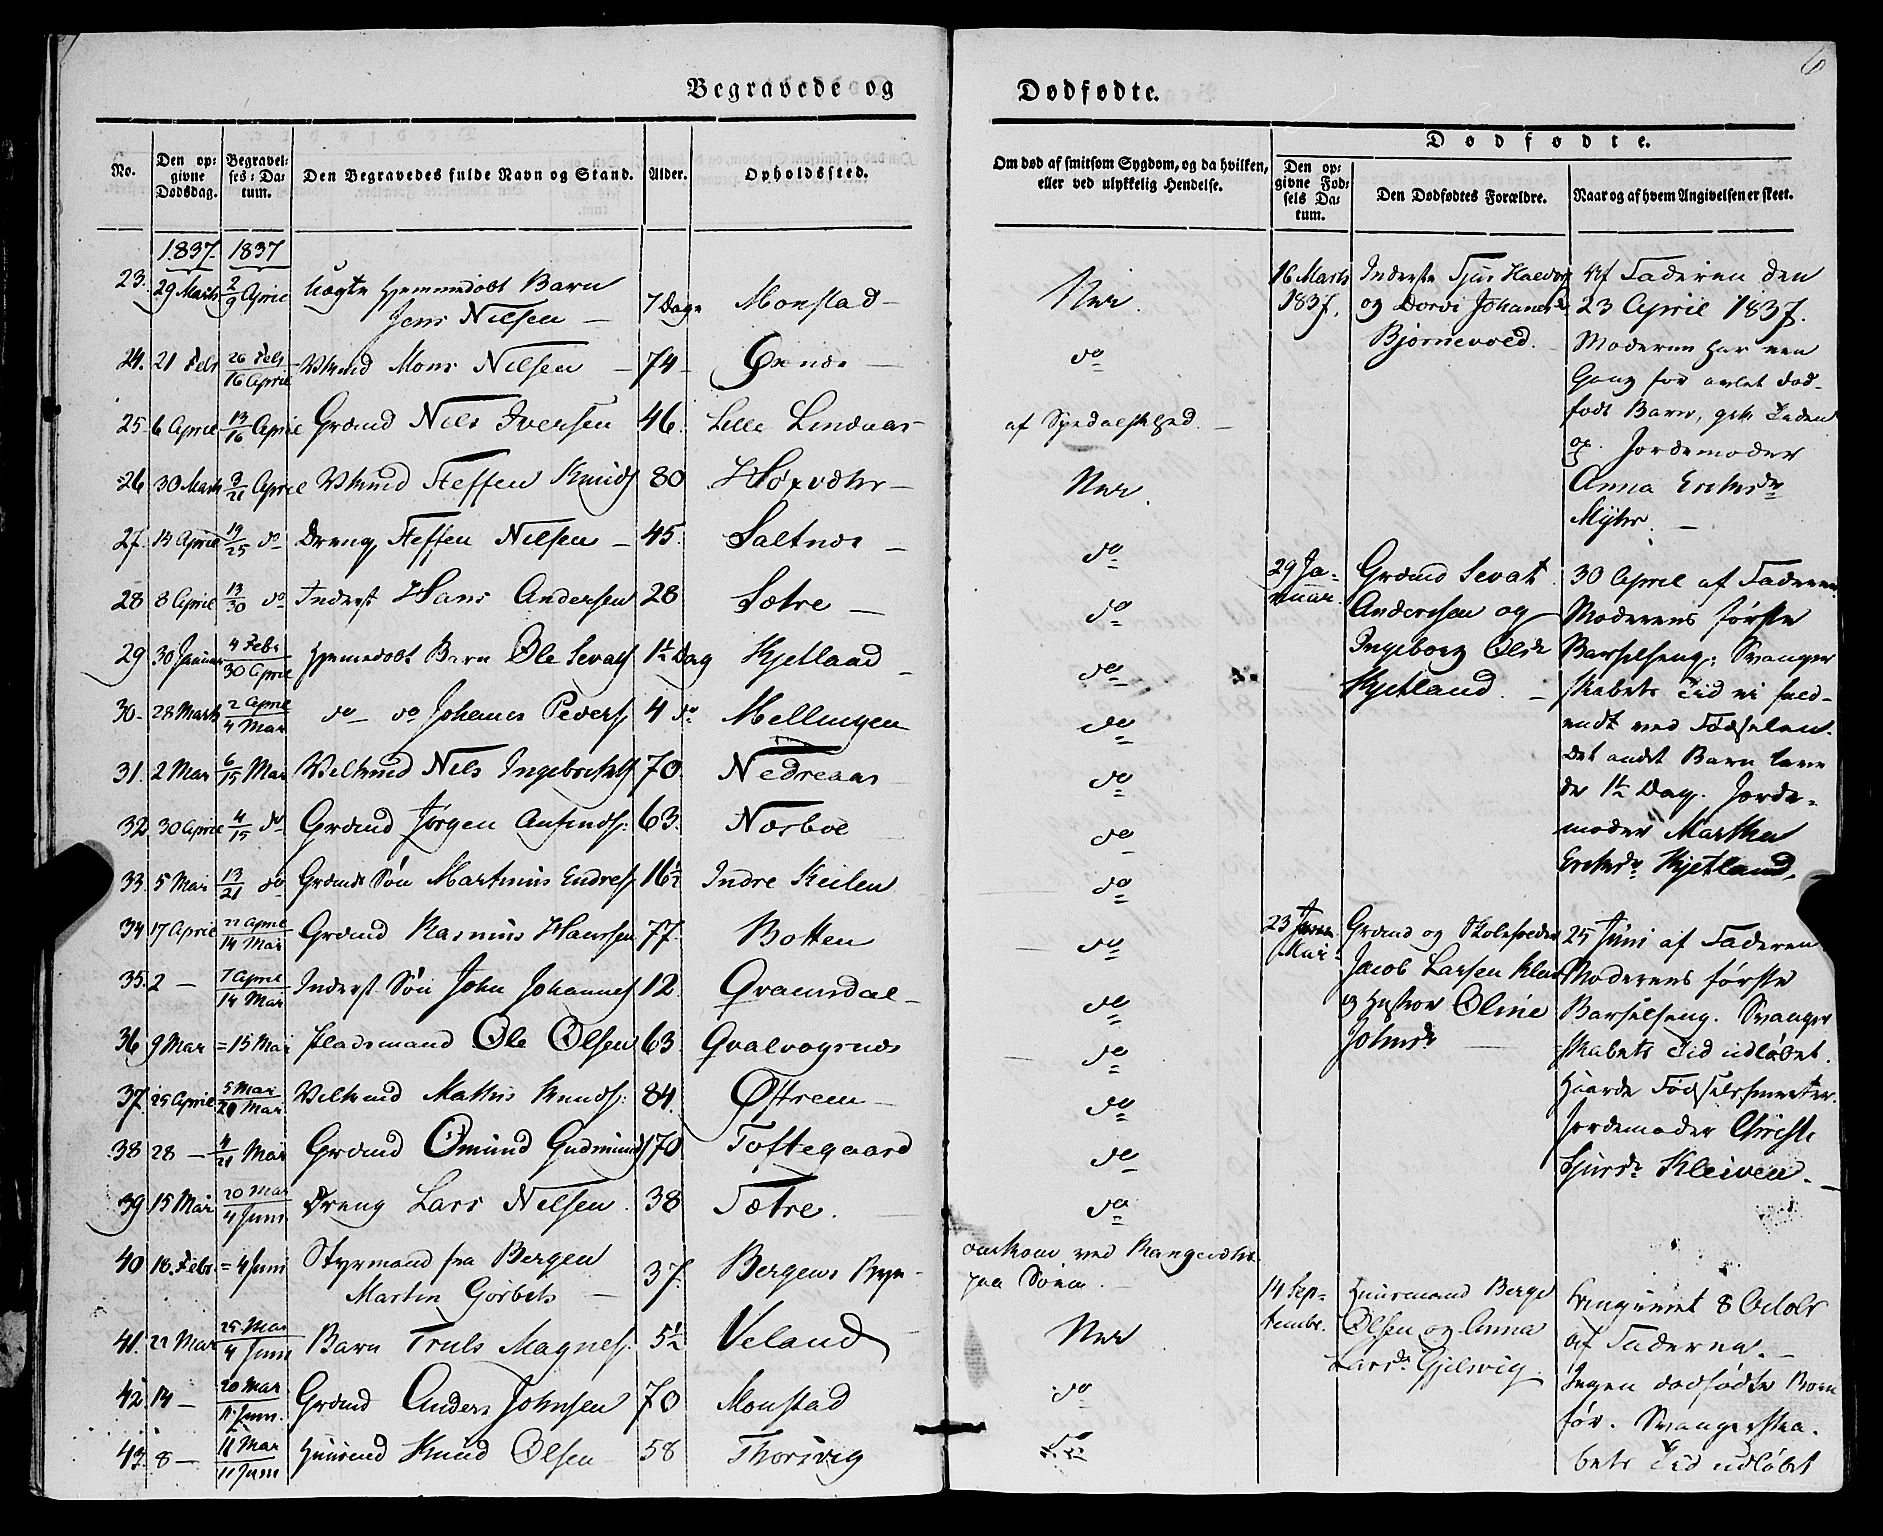 6
Begravede og
Dødfødte.
No.
Den op=
givne
Dødsdag.
Begravel=
ses=Da=
tum.
Den Begravedes fulde Navn og Stand.
Alder.
Opholdssted.
Om død af smitsom Sygdom, og da hvilken,
eller ved ulykkelig Hendelse.
Dødfødte.
Den op=
givne Fød=
sels Da=
tum.
Den Dødfødtes Forældre.
Naar og af hvem Angivelsen er skeet.
1837. 1837
23. 29 Marts 2/9 April Uægte Hjemmedøbt Barn
Jens Nilsen — 7 Dage Monstad —
24. 21 Febr 26 Febr/16 April Mons Nilsen — 74
25 6 April 13/16 April Grdmd Nils Iversen 46. Lille Lindaas
af Spedalskhed. —
26 30 Marts 9/21 April Steffen Knuds 80
27. 13 April 19/25 do Dreng Steffen Nilsen — 45. Saltnes —
do
28 8 April 13/30 do Inderst Hans Andersen 28 Sætre —
do
29 30 Januar 4 Febr/30 April Hjemedøbt Barn Ole Sevats 1½ Dag Kjetland —
do
30. 28 Marts 2 April/4 Mai do do Johanes Peders 4 do Mellingen
do
31. 2 Mai 6/15 Mai Nils Ingebrigts 70. Nedreaas
do
32 30 April 4/15 do Grdmd Jørgen Anfinds: 63. Næsbøe
do
33. 5 Mai 13/21 do Grdmds Søn Martinus Endres 16½ Indre Keilen
do
34 17 April 22 April/14 Mai Grdmd Rasmus Hanssen 77. Botten
do
35. 2 — 7 April/14 Mai Inderst Søn John Johannes 12. Qvamsdal —
do
36 9 Mai = 15 Mai Pladsmand Ole Olsen 63. Qvalvogsnes
do
37. 25 April 5 Mai/20 Mai Knuds: 84. Østrem —
do
38 28 — 4/21 Mai Grdmd Ømund Gudmunds 70 Toftegaard
do
39 15 Mai 20 Mai/4 Juni Dreng Lars Nilsen 38 Sætre.
do
40 18. Febr. = 4 Juni Styrmand fra Bergen
Martin — 37. Bergens Bye —
omkom ved
paa Søen. —
41. 22 Mai 25 Mai/4 Juni Barn Truls Magnes 5½ Veland
42. 14 — 20 Mai/11 Juni Grdmd Anders Johnsen 70 Monstad
do
43. 8 — 11 Mai/11 Juni Huusmd Knud Olsen 58 Thorsvig
do
16 Marts
1837.
Inderste
og Dordi Johanesdr
Bjørnevold.
Af Faderen den
23 April 1837.
Moderen har een
Gang før avlet død-
født Barn,
og. Jordemoder
Anna Erichsdr
Myhr. —
29 Ja-
nuar.
Grdmd Sevat
Anderssen og
Ingeborg Olsdr
Kjetland. —
30 April af Faderen
Moderens første
Barselseng. Svanger
skabets Tid ei fuld-
endt ved Fødselen.
Det andet Barn leve
de 1½ Dag. Jorde-
moder Martha
Erichsdr Kjetland.
23
Mai.
Grdmd og Skoleholder
Jacob Larsen
og Hustrue Oline
Johnsdr —
25 Juni af Faderen
Moderens første
Barselseng. Svanger
skabets Tid udløbet.
Haarde Fødselssmerter.
Jordemoder Christi
Sjursdr Kleiven. —
14 Sep-
tembr.
Huusmand Berge
Olsen og Anna
Larsdr Gjelsvig
Angivet 8 Octobr
af Faderen. —
Ingen dødfødte Børn
før. Svangerska-
bets Tid udløbet